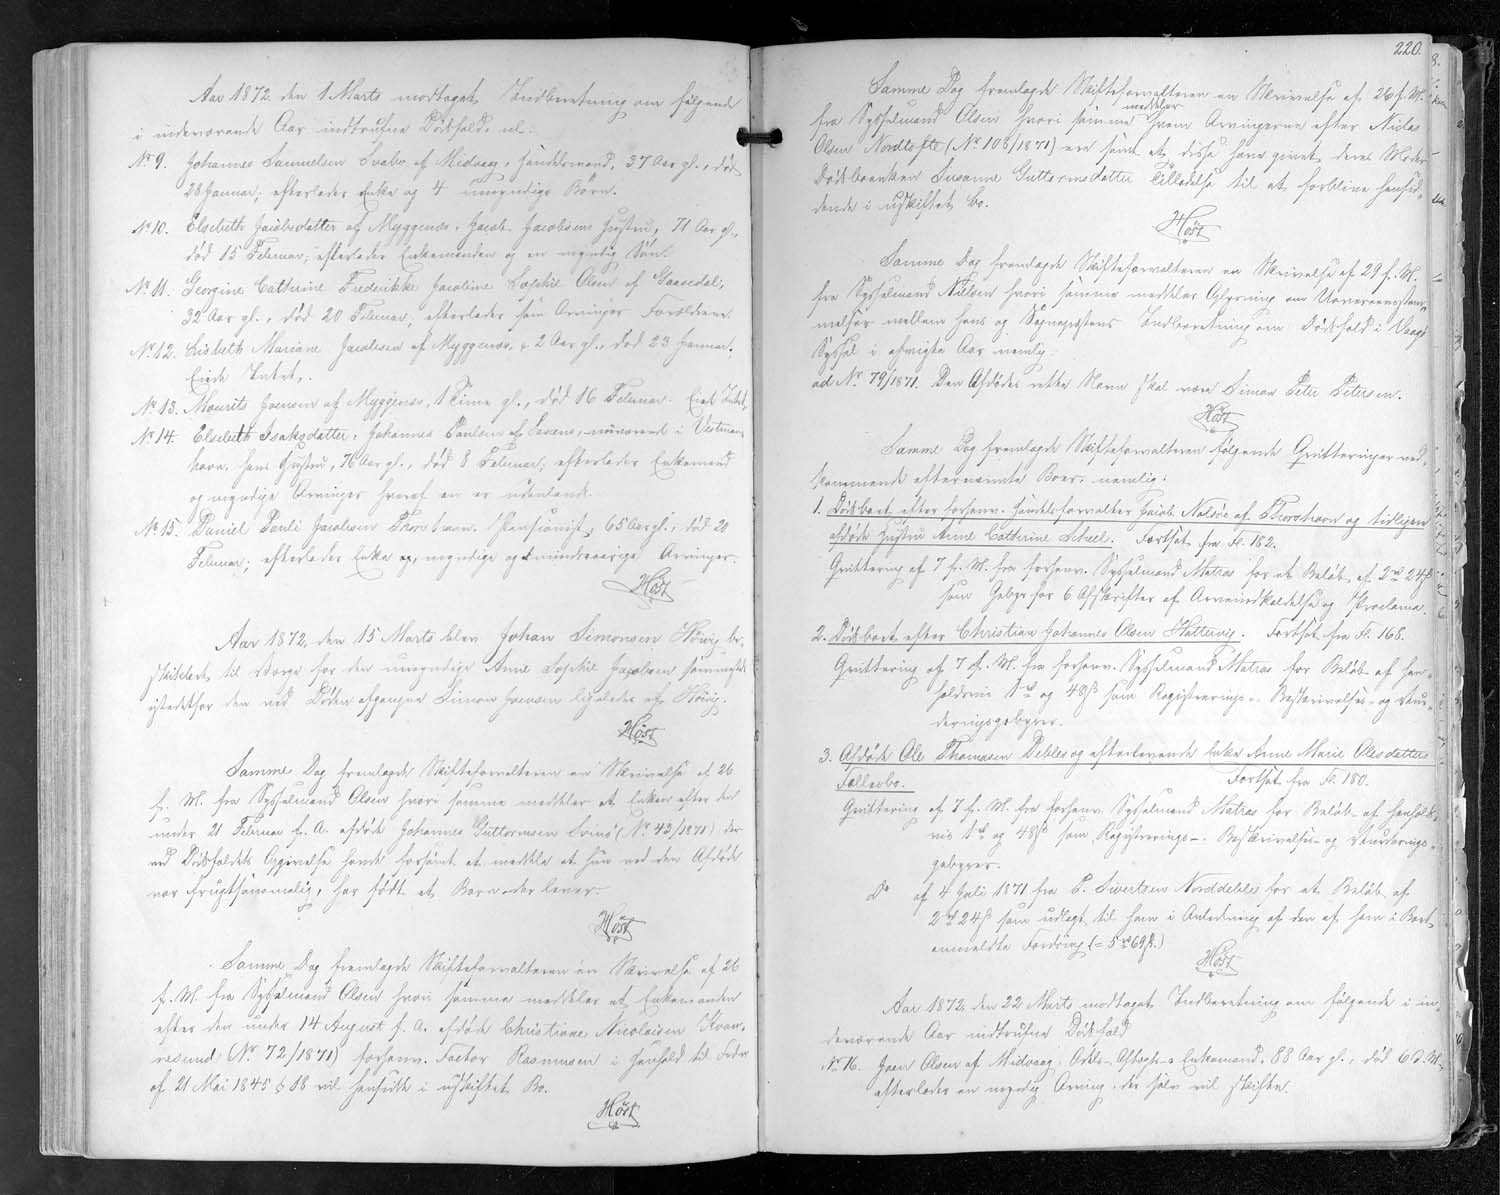 Aar 1872 den 1 Marts modtaget Indberetning om følgende
i indeværende Aar indtrufne Dødsfald, nl:
No 9. Johannes Samuelsen Svabo af Midvaag, Handelsmand, 37 Aar gl., død
28 Januar; efterlader Enke og 4 umyndige Børn.
No 10. Elsebeth Jacobsdatter af Myggenæs, Jacob Jacobsens Hustru, 71 Aar gl.,
død 15 Februar; efterlader Enkemanden og en myndig Søn.
No 11. Georgine Cathrine Frederikke Jacobine Sophie Olsen af Gaasedal,
32 Aar gl., død 20 Februar; efterlader som Arvinger Forældrene.
No 12. Lisbeth Mariane Jacobsen af Myggenæs, 2 Aar gl., død 23 Januar.
Eiede Intet.
No 13. Mourits Joensen af Myggenæs, 1 Time gl., død 16 Februar. Eiede Intet.
No 14. Elsebeth Isaksdatter, Johannes Poulsen af, nuværende i Vestman-
havn, hans Hustru, 76 Aar gl., død 8 Februar; efterlader Enkemand
og myndige Arvinger hvoraf en er udenlands.
No 15. Daniel Pauli Jacobsen Thorshavn, Pensionist, 65 Aar gl., død 20
Februar; efterlader Enke og myndige og mindreaarige Arvinger.
Høst
Aar 1872, den 15 Marts blev Johan Simonsen Høivig be-
skikket til Værge for den umyndige Anne Sophie Jacobsen sammesteds
istedetfor den ved Døden afgangne Simon Joensen ligeledes af Høivig.
Høst
Samme Dag fremlagde Skifteforvalteren en Skrivelse af 26
f. M. fra Sysselmand Olsen hvori samme meddeler at Enken efter den
under 21 Februar f. A. afdøde Johannes Guttormsen (No 43/1871) der
ved Dødsfaldets Opgivelse havde forsømt at meddele at hun ved den Afdøde
var frugtsommelig, har født et Barn der lever.
Høst
Samme Dag fremlagde Skifteforvalteren en Skrivelse af 26
f. M. fra Sysselmand Olsen hvori samme meddeler at Enkemanden
efter den under 14 August f. A. afdøde Christiane Nicolaisen Kvan-
nesund (No 72/1871) forhenv. Factor Rasmussen i Henhold til Frdn
af 21 Mai 1845 § 18 vil hensidde i uskiftet Bo.
Høst
220.
Samme Dag fremlagde Skifteforvalteren en Skrivelse af 26 f. M.
fra Sysselmand Olsen hvori samme meddeler hvem Arvingerne efter Niclas
Olsen Nordtofte (No 108/1871) ere samt at disse have givet deres Moder
Dødsboenken Susanne Guttormsdatter Tilladelse til at forblive hensid-
dende i uskiftet Bo.
Høst
Samme Dag fremlagde Skifteforvalteren en Skrivelse af 29 f. M.
fra Sysselmand Nielsen hvori samme meddeler Oplysning om Uoverensstem-
melser mellem hans og Sognepræstens Indberetning om Dødsfald i Vaagø
Syssel i afvigte Aar nemlig:
ad No 79/1871. Den Afdødes rette Navn skal være Simon Peter Petersen.
Høst
Samme Dag fremlagde Skifteforvalteren følgende Qvitteringer ved-
kommende efternævnte Boer, nemlig:
1. Dødsboet efter forhenv. Handelsforvalter Jacob Nolsøe af Thorshavn og tidligere
afdøde Hustru Anne Cathrine Scheel. Fortsat fra Fl. 182.
Qvittering af 7 f. M. fra forhenv. Sysselmand Matras for et Beløb af 2 rd 24 ß
som Gebyr for 6 Afskrifter af Arveindkaldelse og Proclama.
2. Dødsboet efter Christian Johannes Olsen Hattervig. Fortsat fra Fl. 168.
Qvittering af 7 f. M. fra forhenv. Sysselmand Matras for Beløb af hen-
holdsvis 1 rd og 48 ß som Registrerings-, Beskrivelses- og Vur-
deringsgebyrer.
3. Afdøde Ole Thomasen Debles og efterlevende Enke Anne Marie Olesdatters
Fællesbo. Fortsat fra Fl. 180.
Qvittering af 7 f. M. fra forhenv. Sysselmand Matras for Beløb af henholds-
vis 1 rd og 48 ß som Registrerings-, Beskrivelses- og Vurderings-
gebyrer.
Do af 4 Juli 1871 fra P. Sivertsen Norddebles for et Beløb af
2 rd 24 ß som udlagt til ham i Anledning af den af ham i Boet
anmeldte Fordring (= 5 rd 69 ß.)
Høst
Aar 1872 den 22 Marts modtaget Indberetning om følgende i in-
deværende Aar indtrufne Dødsfald
No 16. Joen Olsen af Midvaag, Enkemand, 88 Aar gl., død 6 d. M.,
efterlader en myndig Arving, der selv vil skifte.